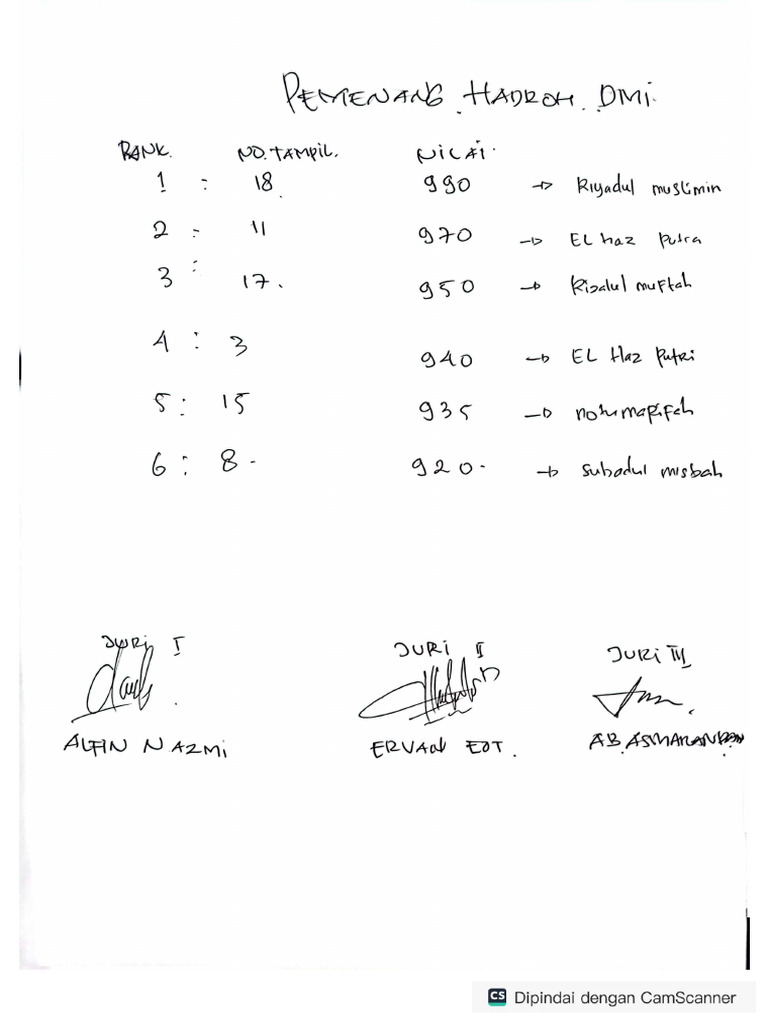 PEMENANG HADROH DMI.
RANK. NO. TAMPIL. NILAI.
1 : 18. 990 → Riyadul muslimin
2 : 11 970 → EL haz putra
3 : 17. 950 → Risalul muftah
4 : 3 940 → EL Haz putri
5 : 15 935 → 
6 : 8. 920. → Subadul misbah
JURI I JURI II JURI III
ALFIN NAZMI ERVAN EDT. AB. ASMARANDAN
CS Dipindai dengan CamScanner